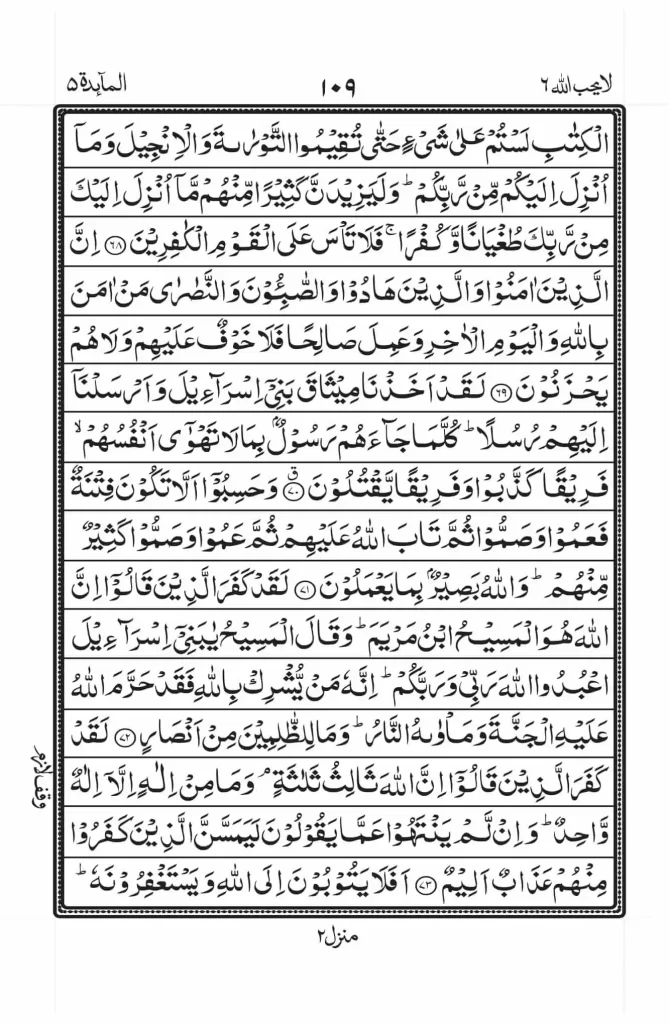 لا یحب الله ٦ ١٠٩ المآىِٕدة ٥
الْكِتٰبِ لَسْتُمْ عَلٰى شَیْءٍ حَتّٰى تُقِیْمُوا التَّوْرٰىةَ وَالْاِنْجِیْلَ وَمَاۤ
اُنْزِلَ اِلَیْكُمْ مِّنْ رَّبِّكُمْ ؕ وَلَیَزِیْدَنَّ كَثِیْرًا مِّنْهُمْ مَّاۤ اُنْزِلَ اِلَیْكَ
مِنْ رَّبِّكَ طُغْیَانًا وَّكُفْرًا ۚ فَلَا تَاْسَ عَلَى الْقَوْمِ الْكٰفِرِیْنَ ۝٦٨ اِنَّ
الَّذِیْنَ اٰمَنُوْا وَالَّذِیْنَ هَادُوْا وَالصّٰبِـُٔوْنَ وَالنَّصٰرٰى مَنْ اٰمَنَ
بِاللّٰهِ وَالْیَوْمِ الْاٰخِرِ وَعَمِلَ صَالِحًا فَلَا خَوْفٌ عَلَیْهِمْ وَلَا هُمْ
یَحْزَنُوْنَ ۝٦٩ لَقَدْ اَخَذْنَا مِیْثَاقَ بَنِیْۤ اِسْرَآءِیْلَ وَاَرْسَلْنَاۤ
اِلَیْهِمْ رُسُلًا ؕ كُلَّمَا جَآءَهُمْ رَسُوْلٌۢ بِمَا لَا تَهْوٰۤى اَنْفُسُهُمْ ۙ
فَرِیْقًا كَذَّبُوْا وَفَرِیْقًا یَّقْتُلُوْنَ ۝٧٠ۗ وَحَسِبُوْۤا اَلَّا تَكُوْنَ فِتْنَةٌ
فَعَمُوْا وَصَمُّوْا ثُمَّ تَابَ اللّٰهُ عَلَیْهِمْ ثُمَّ عَمُوْا وَصَمُّوْا كَثِیْرٌ
مِّنْهُمْ ؕ وَاللّٰهُ بَصِیْرٌۢ بِمَا یَعْمَلُوْنَ ۝٧١ لَقَدْ كَفَرَ الَّذِیْنَ قَالُوْۤا اِنَّ
اللّٰهَ هُوَ الْمَسِیْحُ ابْنُ مَرْیَمَ ؕ وَقَالَ الْمَسِیْحُ یٰبَنِیْۤ اِسْرَآءِیْلَ
اعْبُدُوا اللّٰهَ رَبِّیْ وَرَبَّكُمْ ؕ اِنَّهٗ مَنْ یُّشْرِكْ بِاللّٰهِ فَقَدْ حَرَّمَ اللّٰهُ
عَلَیْهِ الْجَنَّةَ وَمَاْوٰىهُ النَّارُ ؕ وَمَا لِلظّٰلِمِیْنَ مِنْ اَنْصَارٍ ۝٧٢ لَقَدْ
كَفَرَ الَّذِیْنَ قَالُوْۤا اِنَّ اللّٰهَ ثَالِثُ ثَلٰثَةٍ ۘ وَمَا مِنْ اِلٰهٍ اِلَّاۤ اِلٰهٌ
وَّاحِدٌ ؕ وَاِنْ لَّمْ یَنْتَهُوْا عَمَّا یَقُوْلُوْنَ لَیَمَسَّنَّ الَّذِیْنَ كَفَرُوْا
مِنْهُمْ عَذَابٌ اَلِیْمٌ ۝٧٣ اَفَلَا یَتُوْبُوْنَ اِلَى اللّٰهِ وَیَسْتَغْفِرُوْنَهٗ ؕ
وقف لازم
منزل ٢